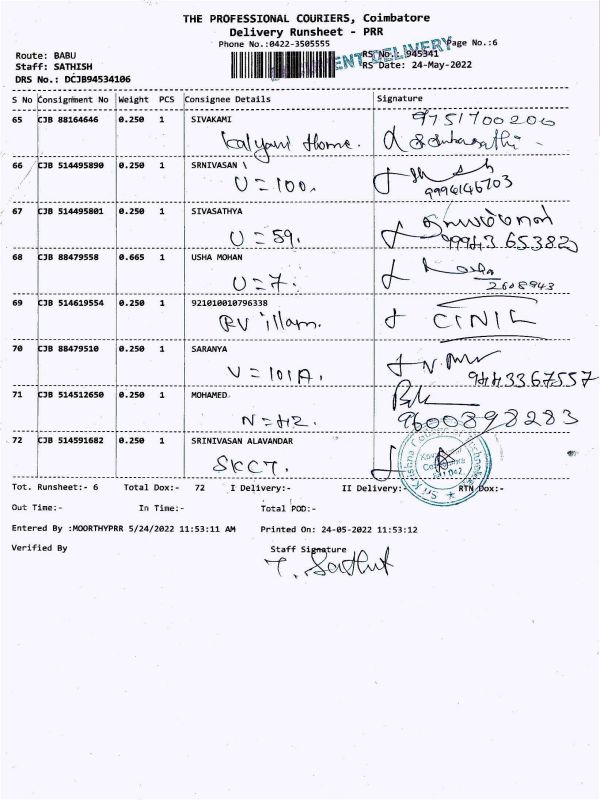 THE PROFESSIONAL COURIERS, Coimbatore
Delivery Runsheet - PRR
Phone No.:0422-3505555 Page No.:6
Route: BABU RS No. 945341
Staff: SATHISH RS Date: 24-May-2022
DRS No.: DCJB94534106
DELIVERY
S No Consignment No Weight PCS Consignee Details Signature
65 CJB 88164646 0.250 1 SIVAKAMI 9751700200
Kalyani Home.
66 CJB 514495890 0.250 1 SRNIVASAN \
U = 100. 9994146703
67 CJB 514495801 0.250 1 SIVASATHYA
U = 59. 99943 65382
68 CJB 88479558 0.665 1 USHA MOHAN
U = 7. 2608943
69 CJB 514619554 0.250 1 921010010796338
RV illam. CINIL
70 CJB 88479510 0.250 1 SARANYA
V = 101A. 9443367557
71 CJB 514512650 0.250 1 MOHAMED
N = 42. 9600898283
72 CJB 514591682 0.250 1 SRINIVASAN ALAVANDAR
SKCT.
Sri Krishna
Tot. Runsheet:- 6 Total Dox:- 72 I Delivery:- II Delivery:- RTN Dox:-
Out Time:- In Time:- Total POD:-
Entered By :MOORTHYPRR 5/24/2022 11:53:11 AM Printed On: 24-05-2022 11:53:12
Verified By Staff Signature